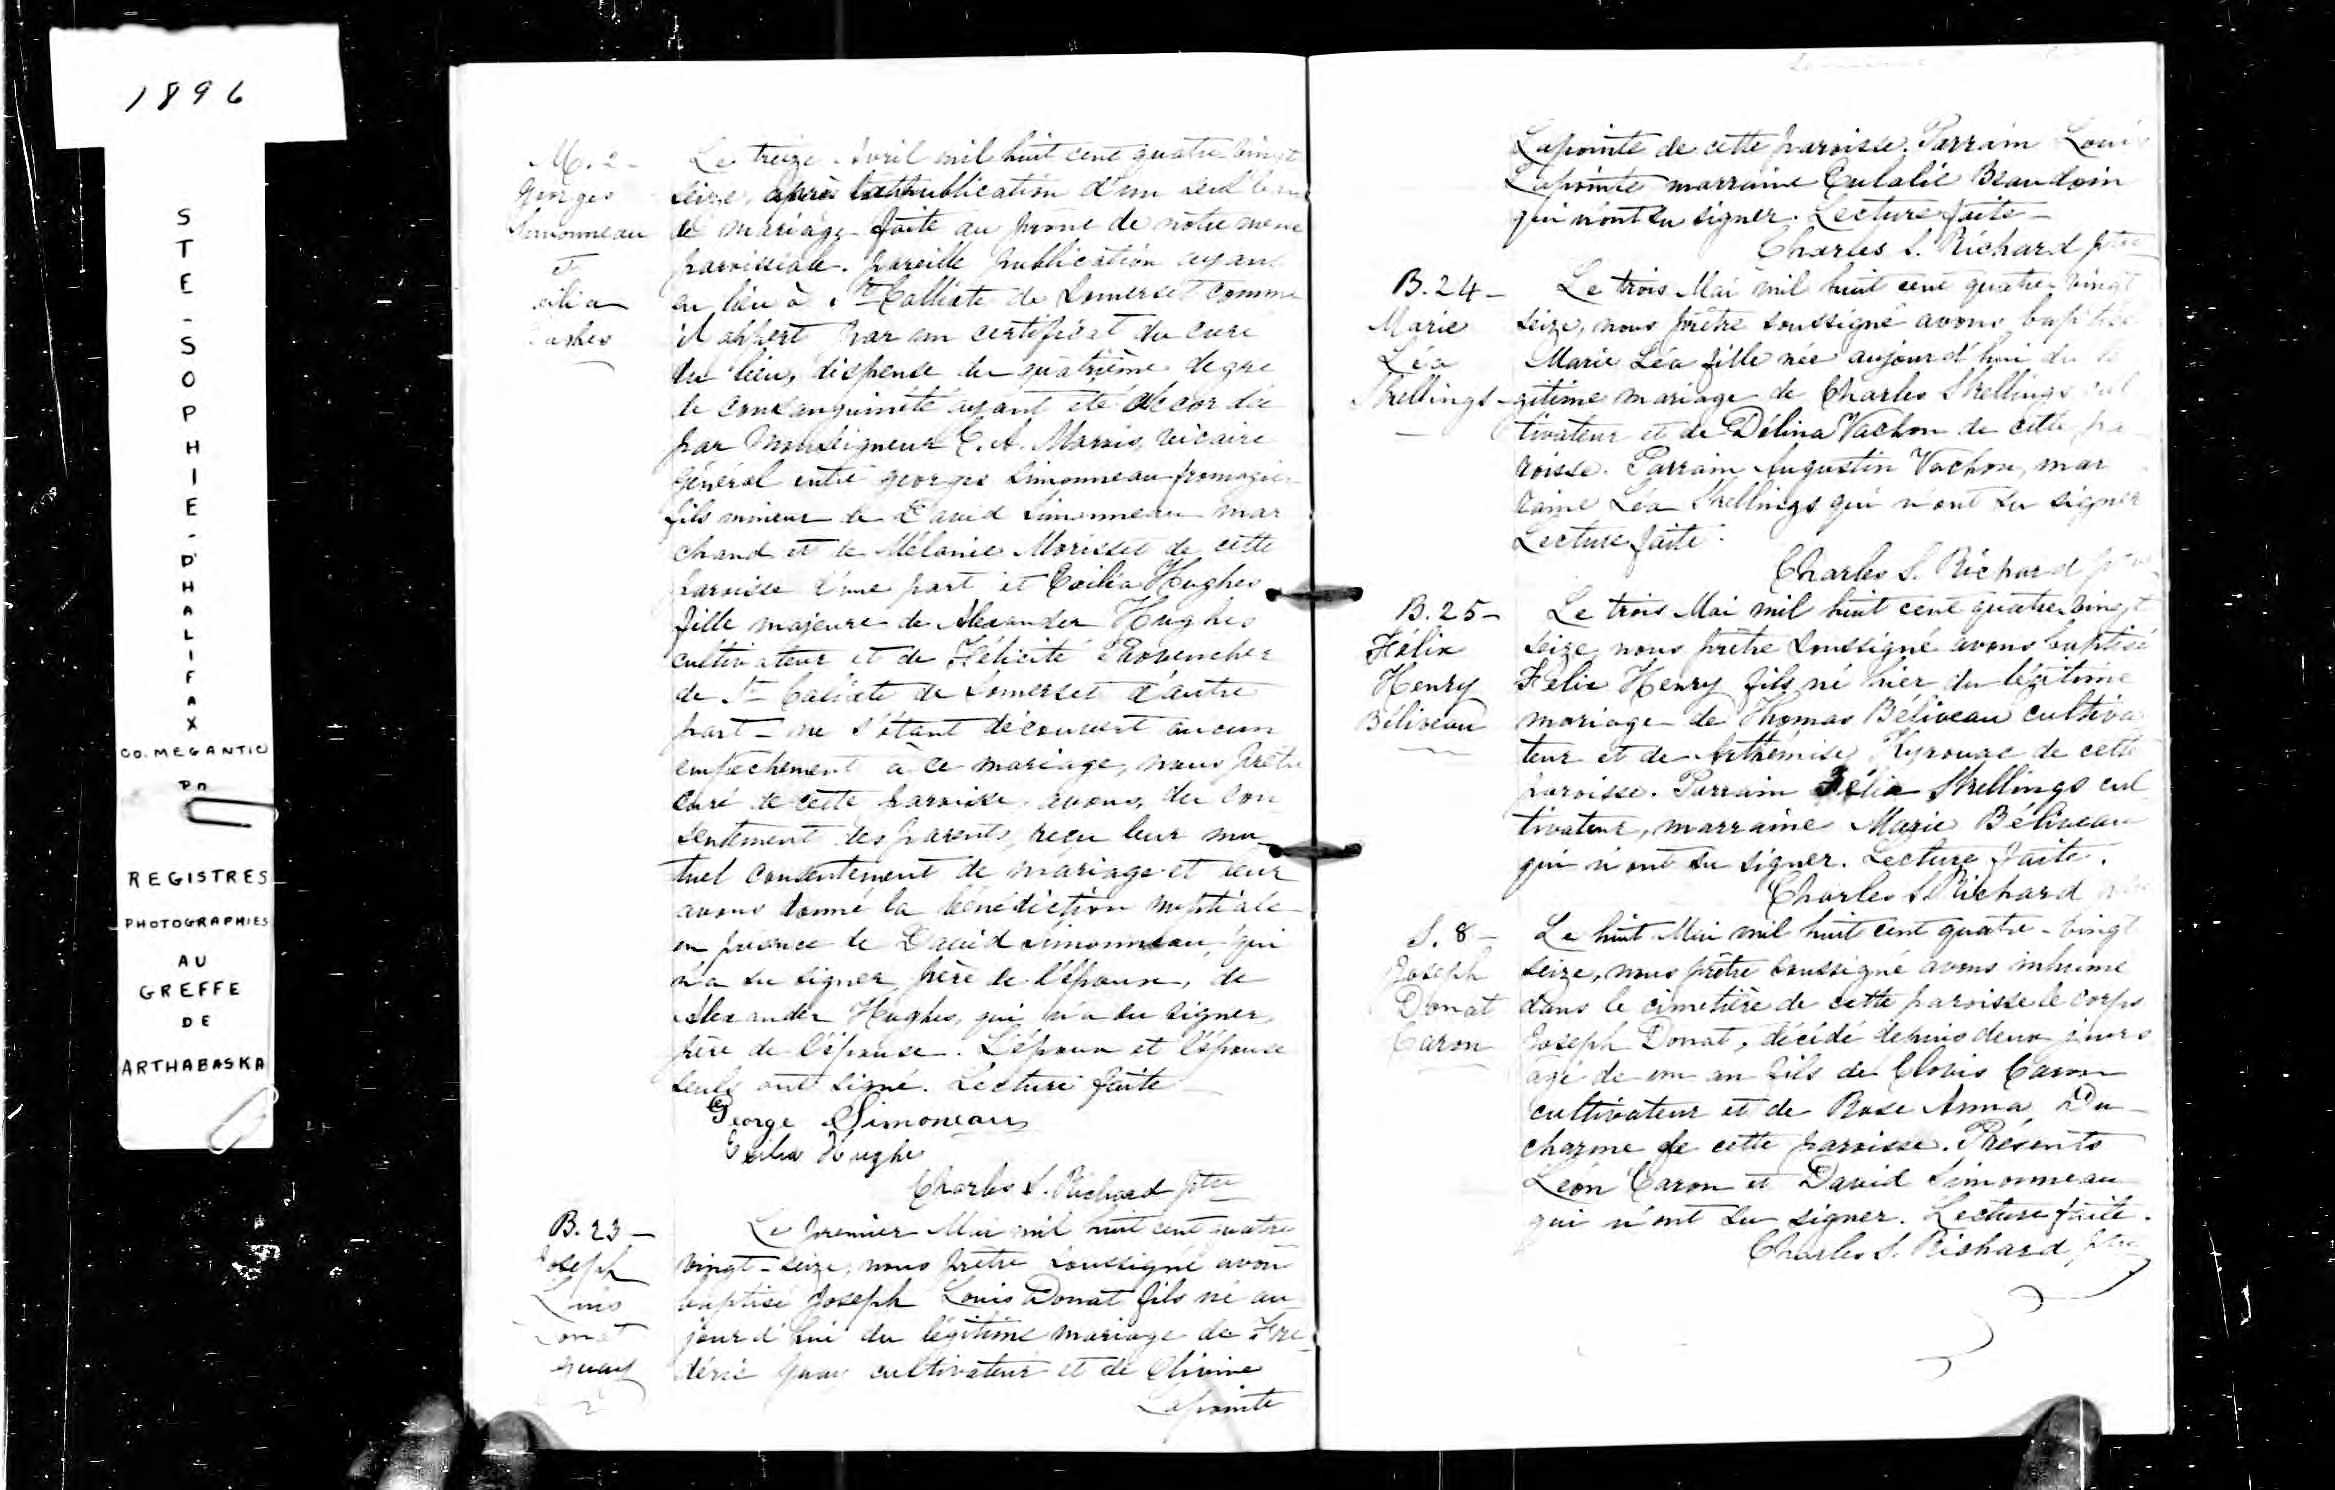 1896
STE-SOPHIE-D'HALIFAX
CO. MEGANTIC
REGISTRES
PHOTOGRAPHIES
AU
GREFFE
DE
ARTHABASKA
M. 2 -
Georges
Simonneau
et
Le treize Avril mil huit cent quatre vingt
seize, après la publication d'un seul ban
de mariage faite au prône de notre messe
paroissiale. pareille publication ayant
eu lieu à St Calliste de Somerset comme
il appert par un certificat du curé
du lieu, dispense du quatrième degré
de consanguinité ayant été accordée
par Monseigneur C. A. Marois, vicaire
général entre Georges Simonneau fromagier
fils mineur de David Simonneau mar
chand et de Mélanie Morisset de cette
paroisse d'une part et Exilia Hughes
fille majeure de Alexander Hughes
cultivateur et de Félicité Provencher
de St Calixte de Somerset d'autre
part - ne s'étant découvert aucun
empêchement à ce mariage, nous prêtre
curé de cette paroisse, avons, du con
sentement des parents, reçu leur mu
tuel consentement de mariage et leur
avons donné la bénédiction nuptiale
en présence de David Simonneau, qui
n'a su signer, père de l'époux, de
Alexander Hughes, qui n'a su signer,
père de l'épouse. L'époux et l'épouse
seuls ont signé. Lecture faite
George Simoneau
Exilia Hughe
Charles S. Richard ptre
B. 23 -
Joseph
Louis
Donat
Guay
Le premier Mai mil huit cent quatre
vingt-seize, nous prêtre soussigné avon
baptisé Joseph Louis Donat fils né au
jourd'hui du légitime mariage de Fré-
déric Guay cultivateur et de Olivine
Lapointe
Lapointe de cette paroisse. Parrain Louis
Lapointe marraine Eulalie Beaudoin
qui n'ont su signer. Lecture faite -
Charles S. Richard ptre
B. 24 -
Marie
Léa
Skellings
Le trois Mai mil huit cent quatre vingt
seize, nous prêtre soussigné avons baptisé
Marie Léa fille née aujourd'hui du lé
gitime mariage de Charles Skellings cul
tivateur et de Délina Vachon de cette pa
roisse. Parrain Augustin Vachon, mar
raine Léa Skellings qui n'ont su signer
Lecture faite.
Charles S. Richard ptre
B. 25 -
Félix
Henry
Béliveau
Le trois Mai mil huit cent quatre vingt
seize nous prêtre soussigné avons baptisé
Félix Henry fils né hier du légitime
mariage de Thomas Béliveau cultiva
teur et de Arthémise Kyrouac de cette
paroisse. Parrain Félix Skellings cul
tivateur, marraine Marie Béliveau
qui n'ont su signer. Lecture faite.
Charles S. Richard ptre
S. 8 -
Joseph
Donat
Caron
Le huit Mai mil huit cent quatre-vingt
seize, nous prêtre soussigné avons inhumé
dans le cimetière de cette paroisse le corps
Joseph Donat, décédé depuis deux jours
agé de un an fils de Clovis Caron
cultivateur et de Rose Anna Du-
charme de cette paroisse. Présents
Léon Caron et David Simonneau
qui n'ont su signer. Lecture faite.
Charles S. Richard, ptre